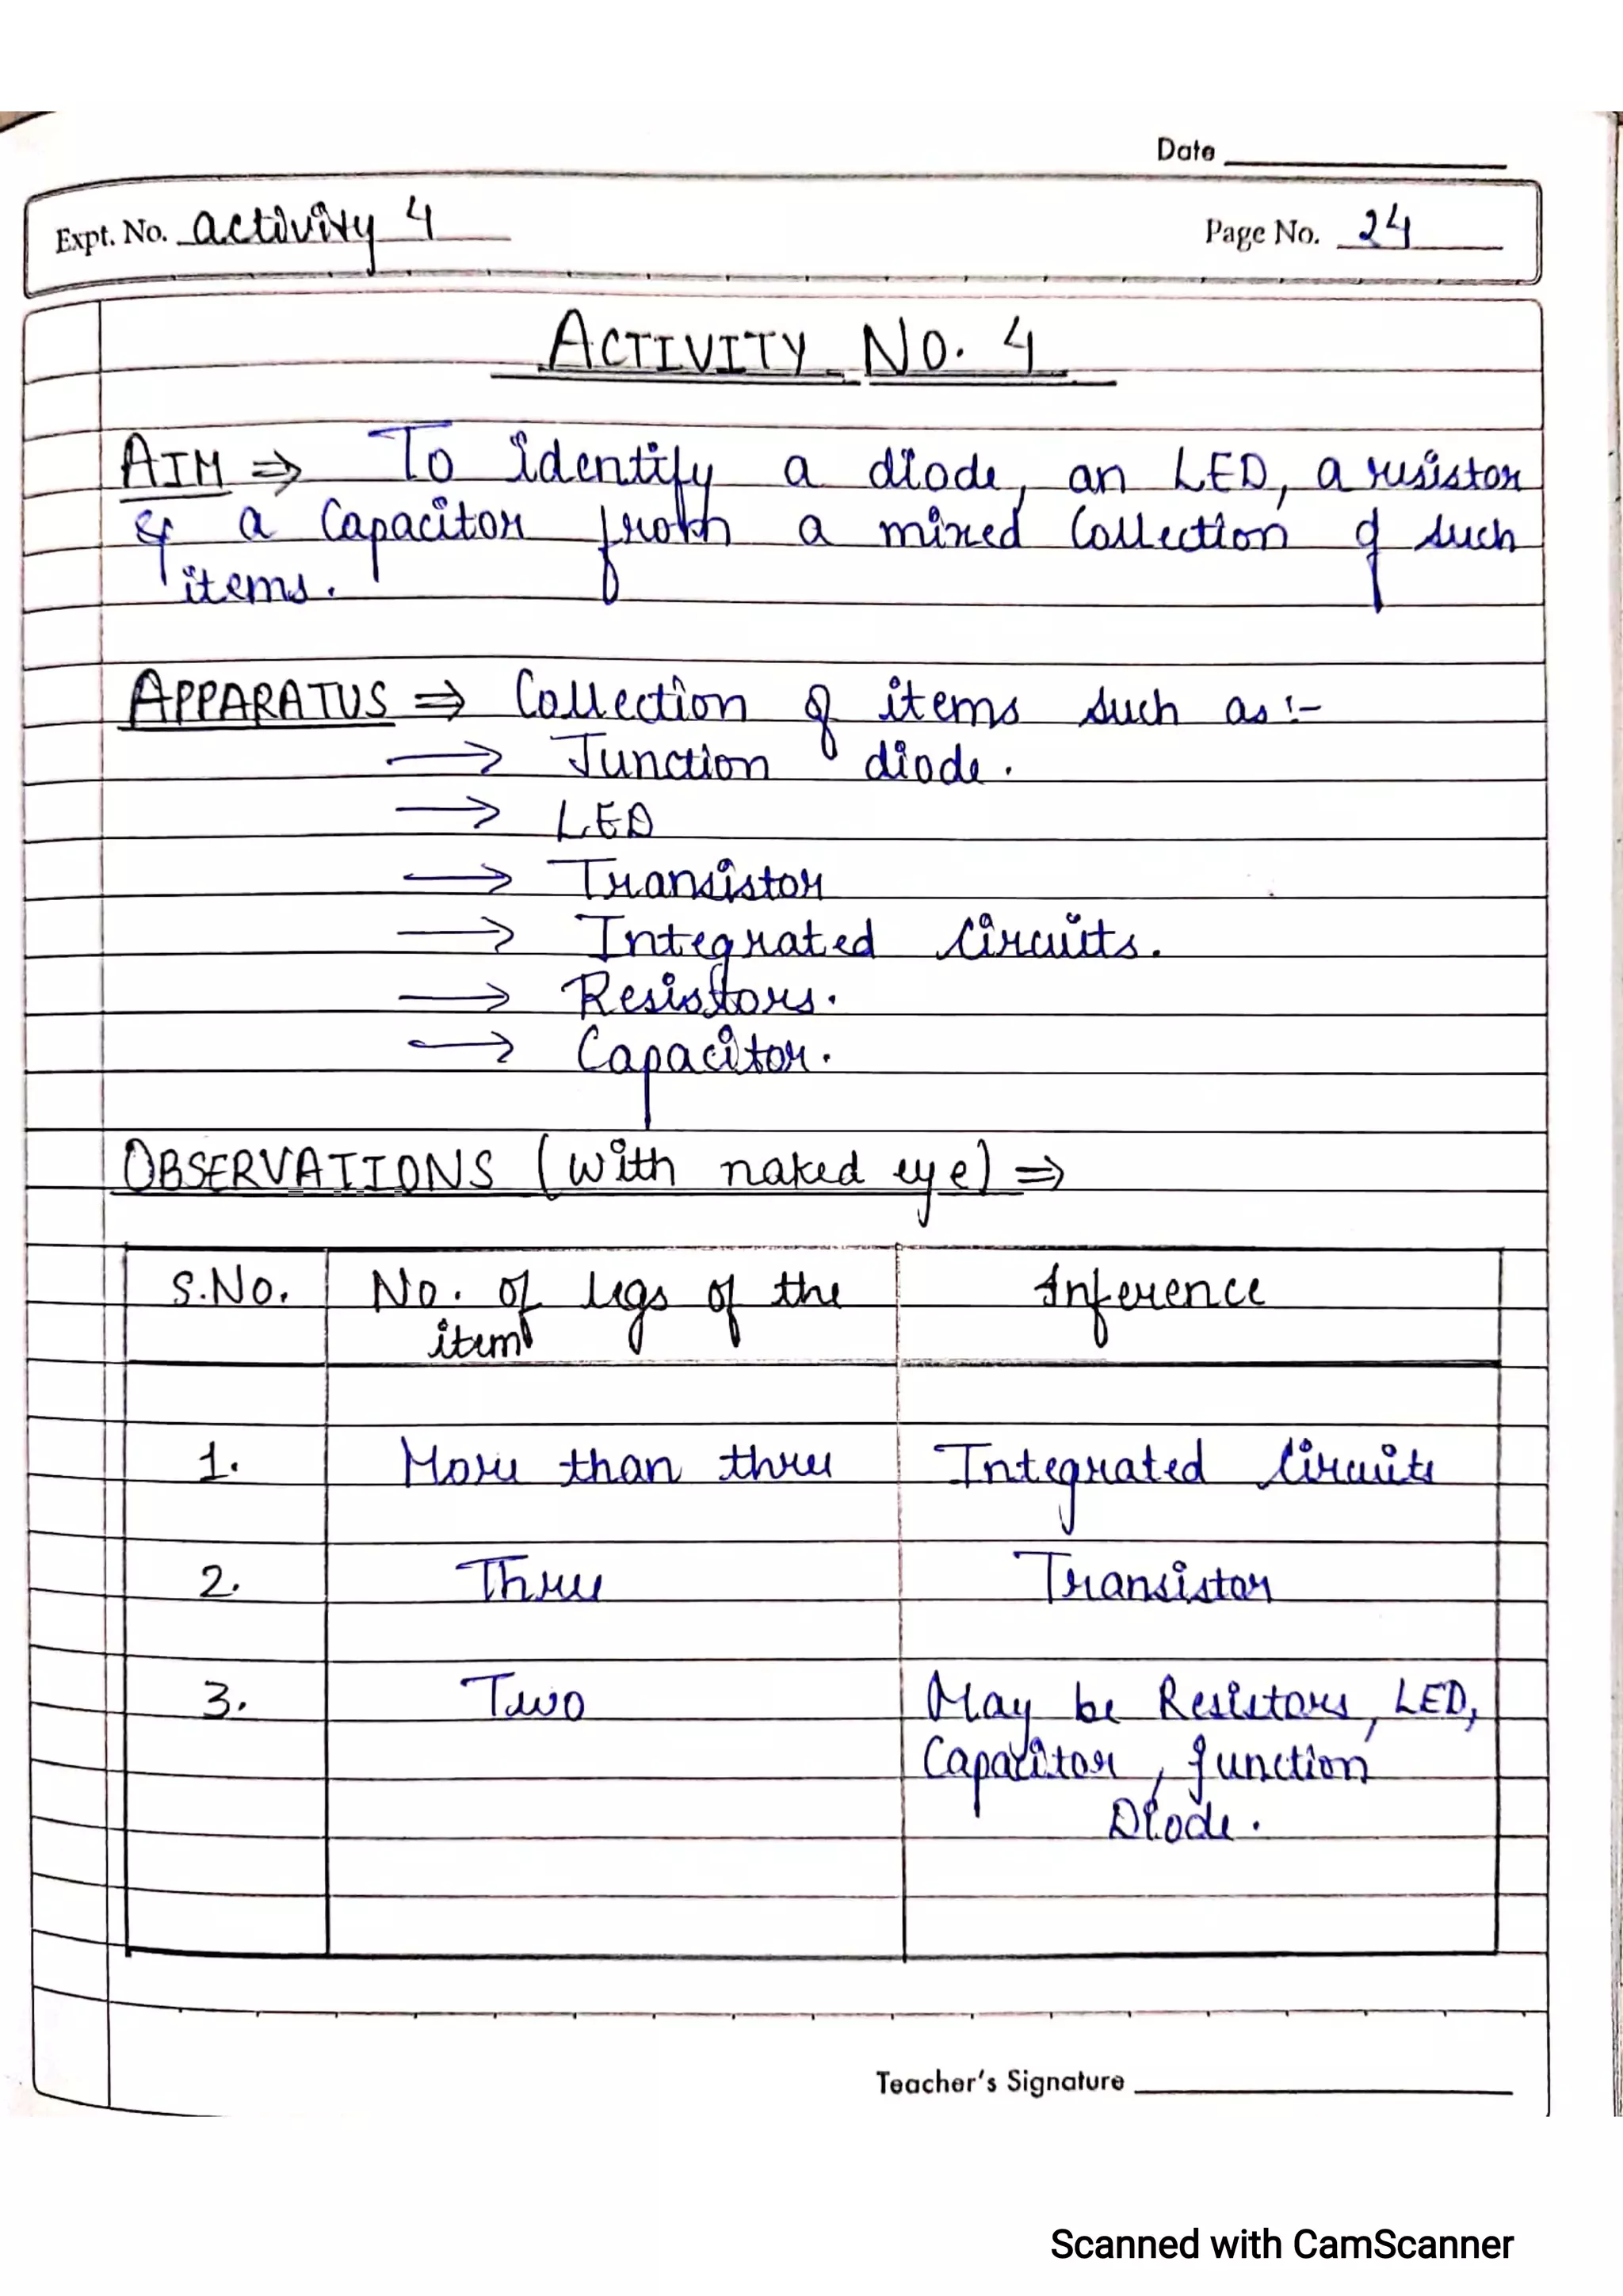 Date
Expt. No. activity 4
Page No. 24
ACTIVITY NO. 4
AIM ⇒ To identify a diode, an LED, a resistor
& a Capacitor from a mixed Collection of such
items.
APPARATUS ⇒ Collection of items such as :-
→ Junction diode.
→ LED
→ Transistor
→ Integrated Circuits.
→ Resistors.
→ Capacitor.
OBSERVATIONS (With naked eye) ⇒
S.No. No. of legs of the Inference
item
1. More than three Integrated Circuits
2. Three Transistor
3. Two May be Resistors, LED,
Capacitor, junction
Diode.
Teacher's Signature
Scanned with CamScanner